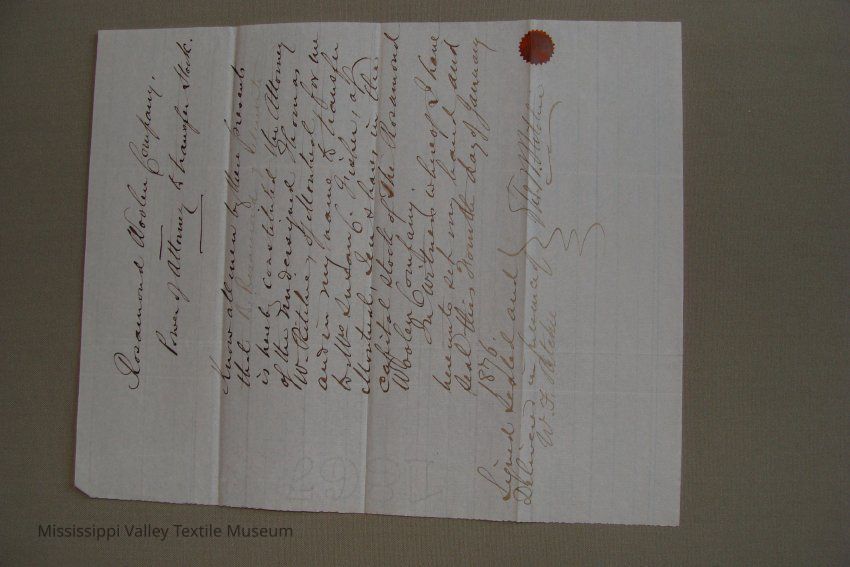 Rosamond Woolen Company.
Power of Attorney to transfer Stock.
Know all men by these presents
that
is hereby constituted the Attorney
of the undersigned Thomas
W. Ritchie, of Montreal, for me
and in my name to transfer
to Mrs Susan C. Fisher, of
Montreal, Ten shares in the
capital stock of The Rosamond
Woolen Company.
In Witness whereof I have
hereunto set my hand and
Seal this Fourth day of January
1876.
Signed Sealed and
Delivered in presence of
Thos W Ritchie
W. F. Ritchie
Mississippi Valley Textile Museum